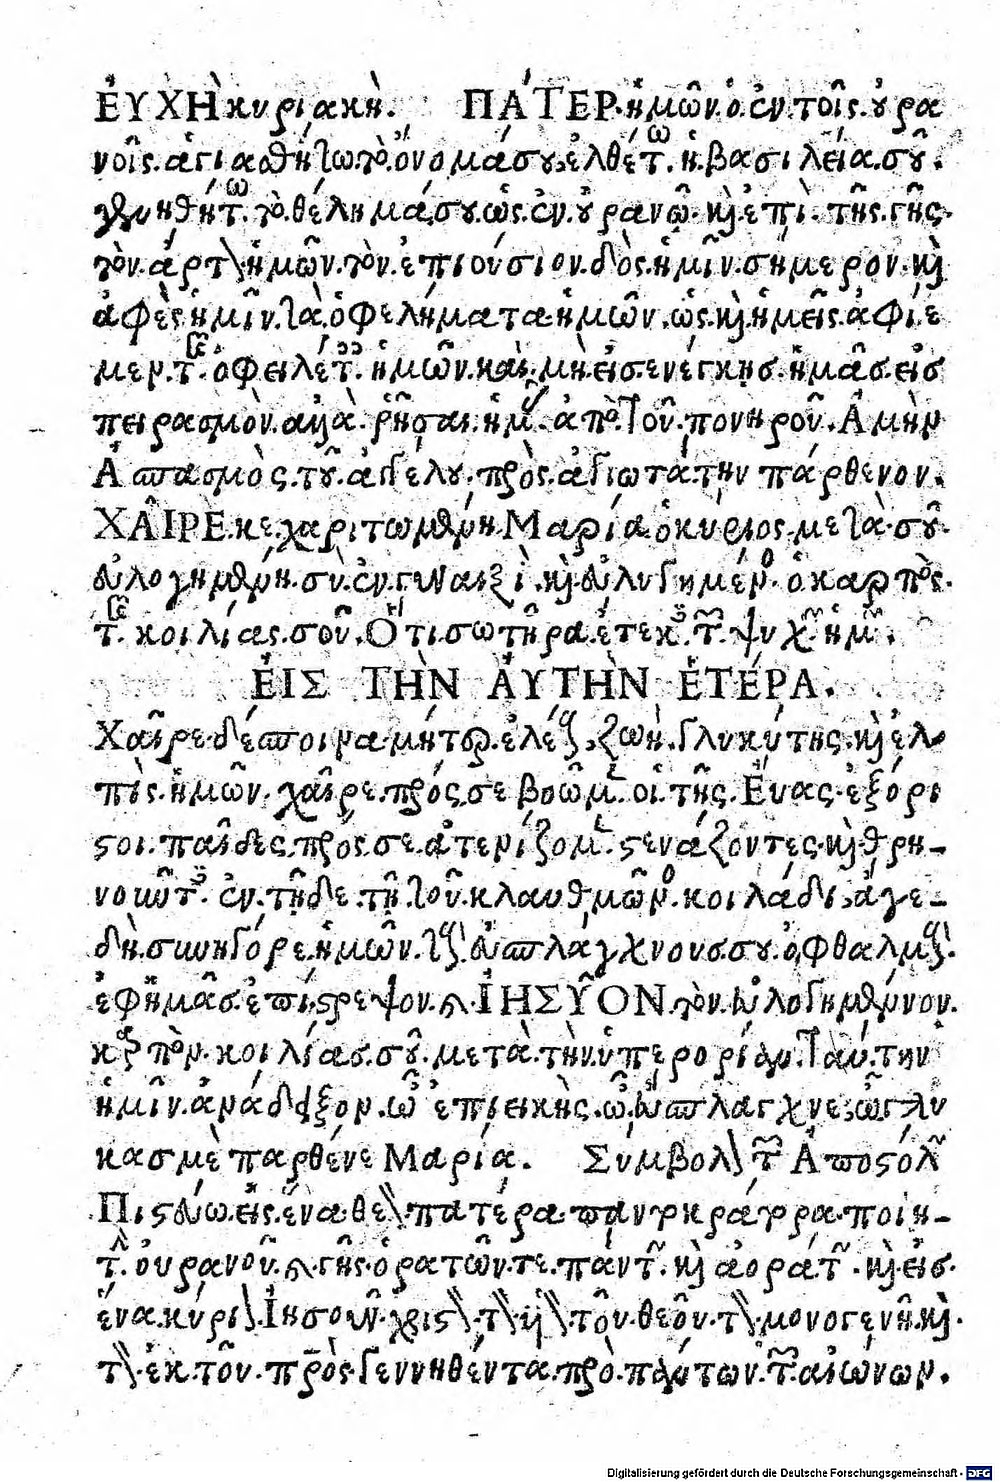 ἘΥΧῊ κυριακὴ. ΠΑ´ΤΕΡ·ἡμῶν·ὁ·ἐν·τοῖς·ὐρα
νοῖς·ἁγιαθήτω·τὸ·ὄνομά·σου·ἐλθέτω·ἡ·βασιλεία·σῦ·
γενηθήτω·τὸ·θέλημά·σου·ὡς·ἐν·ὐρανῶ·κὶ·ἐπὶ·τῆς·γῆς·
τὸν·ἄρτον·ἡμῶν·τὸν·ἐπιούσιον·δὸς·ἡμῖν·σήμερον·κὶ
ἄφὲς·ἡμῖν·τὰ·ὀφελήματα·ἡμῶν·ὡς·κὶ·ἡμεῖς·ἀφίε
μεν·τοῖς·ὀφειλέταις·ἡμῶν·καὶ·μὴ·εἰσ·ενέγκησ·ἡμᾶσ·εἰσ
πειρασμὸν·ἀλλὰ·ῥῆσαι·ἡμᾶς·ἀπὸ·τοῦ·πονηροῦ·Ἀμὴν
Ἀσπασμὸς·τῦ·ἀγγέλου·πρὸς·ἁγιωτάτην πάρθενον·
ΧΑῖΡΕ·κεχαριτωμένη·Μαρία·ὁκύριος·μετὰ·σῦ·
εὐλογημένη·σὺ·ἐν·γυναιξὶ·κὶ·εὐλογημένος·ὁκαρπὸς·
τῆς·κοιλίας·σοῦ·Ὅτι·σωτῆρα·ἔτεκες·τῶν·ψυχῶν·ἡμῶν·
ἘΙΣ ΤῊΝ ἈΥΤῊΝ ἙΤΕ´ΡΑ.
Χαῖρε·δέσποινα·μήτηρ·ἐλέους·ζωὴ·γλυκύτης·κὶ·ἐλ
πὶς·ἡμῶν·χαῖρε·πρός·σε βοῶμεν·οἱ·τῆς·Ἔυας·ἐξόρι
στοι·παῖδες·πρός·σε·στενάζοντες·κὶ·θρη-
νοῦντες·ἐν·τῇδε·τῇ·τοῦ·κλαυθμῶνος·κοιλάδι·ἄγε-
δὴ·συνηγόρε·ἡμῶν·τοὺς·εὐσπλάγχνους·σου·ὀφθαλμοὺς·
ἐφʼἡμᾶσ·ἐπίστρεψον·καὶ·ἸΗΣΥ͂ΟΝ·τὸν·εὐλογημένον·
καρπὸν·κοιλίασ·σῦ·μετὰ·τὴν·ὑπερορίαν·ταύτην
ἡμῖν·ἀνάδειξον·ὦ ἐπιεικὴς·ὦ·εὔσπλαγχνε·ὦ·γλυ
κασμὲ παρθένε Μαρία. Σύμβολον τῶν Ἀποστόλων
Πιστεύω·εἰς·ἕνα·θεὸν·πατέρα·παντοκράτορα·ποιη-
τὴν·οὐρανοῦ·καὶ·γῆς·ὁρατῶν·τε·πάντων·κὶ ἀοράτων·κὶ·εἰσ·
ἕνα·κύριον·Ἰησοῦν·χριστὸν·τὸν·υἱὸν·τοῦ·θεοῦ·τὸν·μονογενῆ·κὶ·
τὸν·ἐκ·τοῦ·πατρὸς·γεννηθέντα·πρὸ·πάντων·τῶν·αἰώνων·
Digitalisierung gefördert durch die Deutsche Forschungsgemeinschaft · DFG